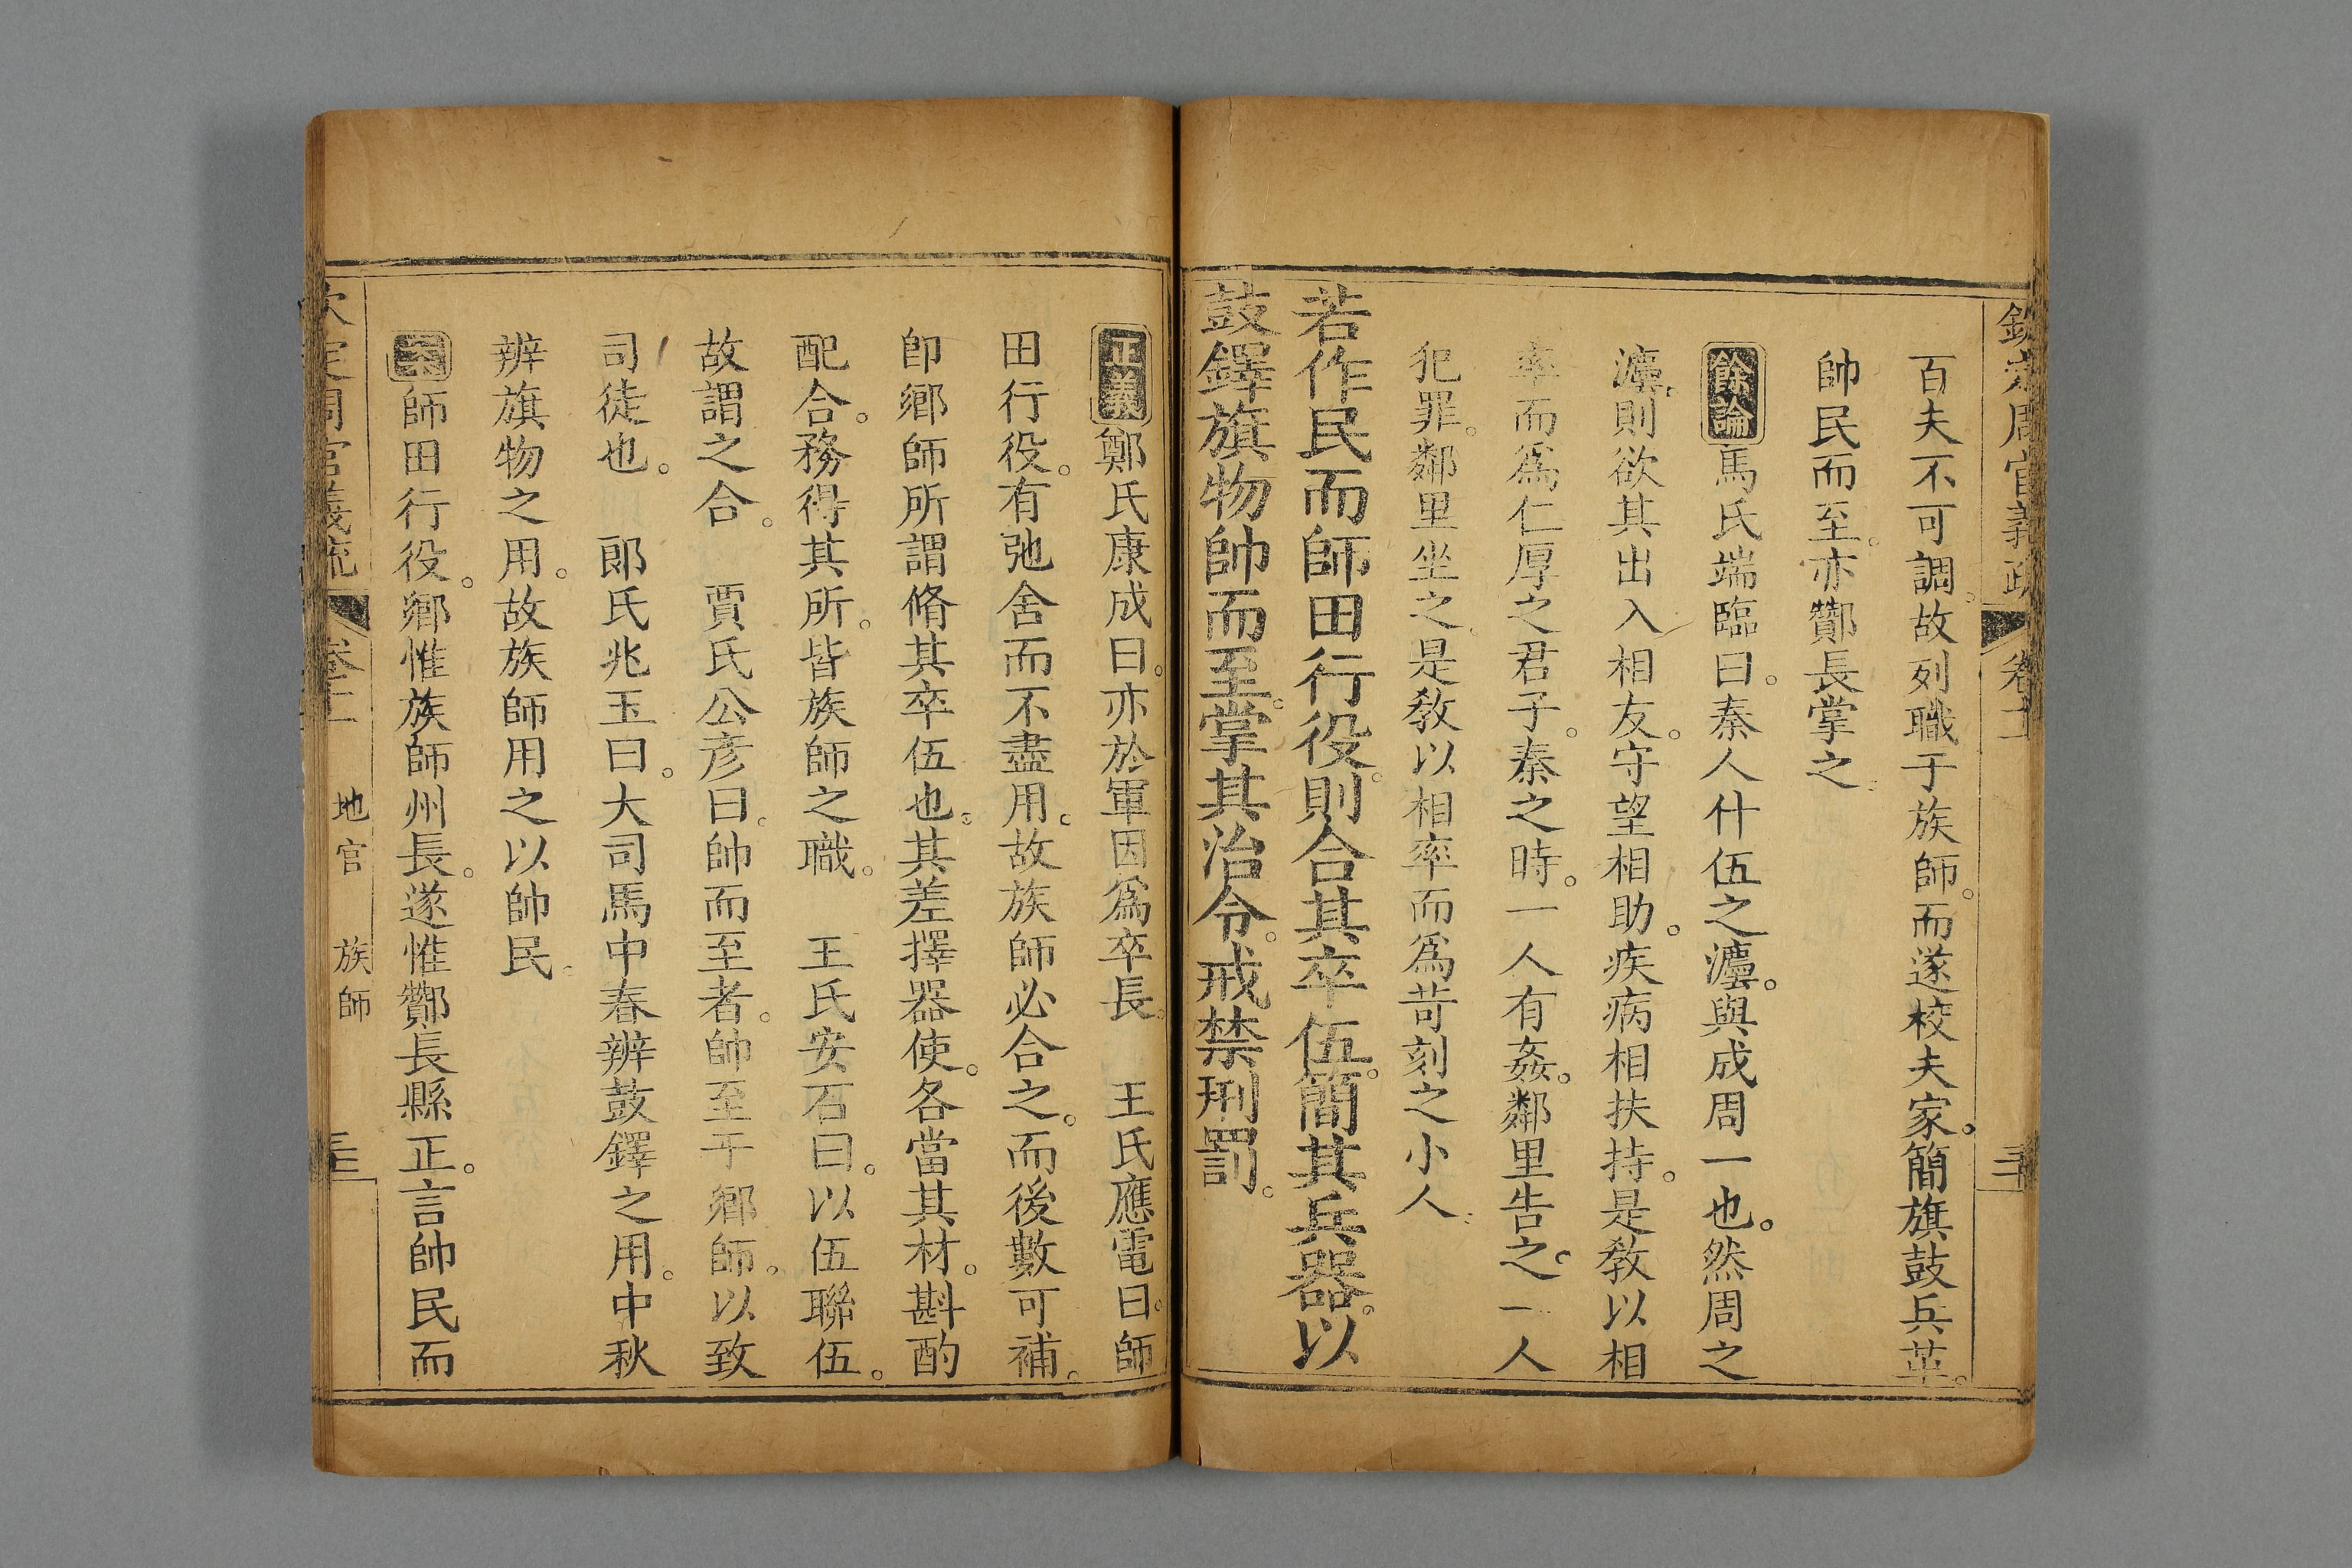 欽定周官義疏 卷十一
百夫不可調。故列職于族師。而遂校夫家。簡旗鼓兵革。
帥民而至。亦酇長掌之。
餘論馬氏端臨曰。秦人什伍之灋。與成周一也。然周之
灋。則欲其出入相友。守望相助。疾病相扶持。是敎以相
率而爲仁厚之君子。秦之時。一人有姦。鄰里告之。一人
犯罪。鄰里坐之。是敎以相率而爲苛刻之小人。
若作民而師田行役。則合其卒伍。簡其兵器。以
鼓鐸旗物帥而至。掌其治令。戒禁刑罰。
正義鄭氏康成曰。亦於軍因爲卒長。 王氏應電曰。師
田行役。有弛舍而不盡用。故族師必合之。而後數可補。
卽鄉師所謂脩其卒伍也。其差擇器使。各當其材。斟酌
配合。務得其所。皆族師之職。 王氏安石曰。以伍聯伍。
故謂之合。 賈氏公彦曰。帥而至者。帥至于鄉師。以致
司徒也。 郎氏兆玉曰。大司馬中春辨鼓鐸之用。中秋
辨旗物之用。故族師用之以帥民。
師田行役。鄉惟族師州長。遂惟酇長縣正。言帥民而
欽定周官義疏 卷十一 地官 族師